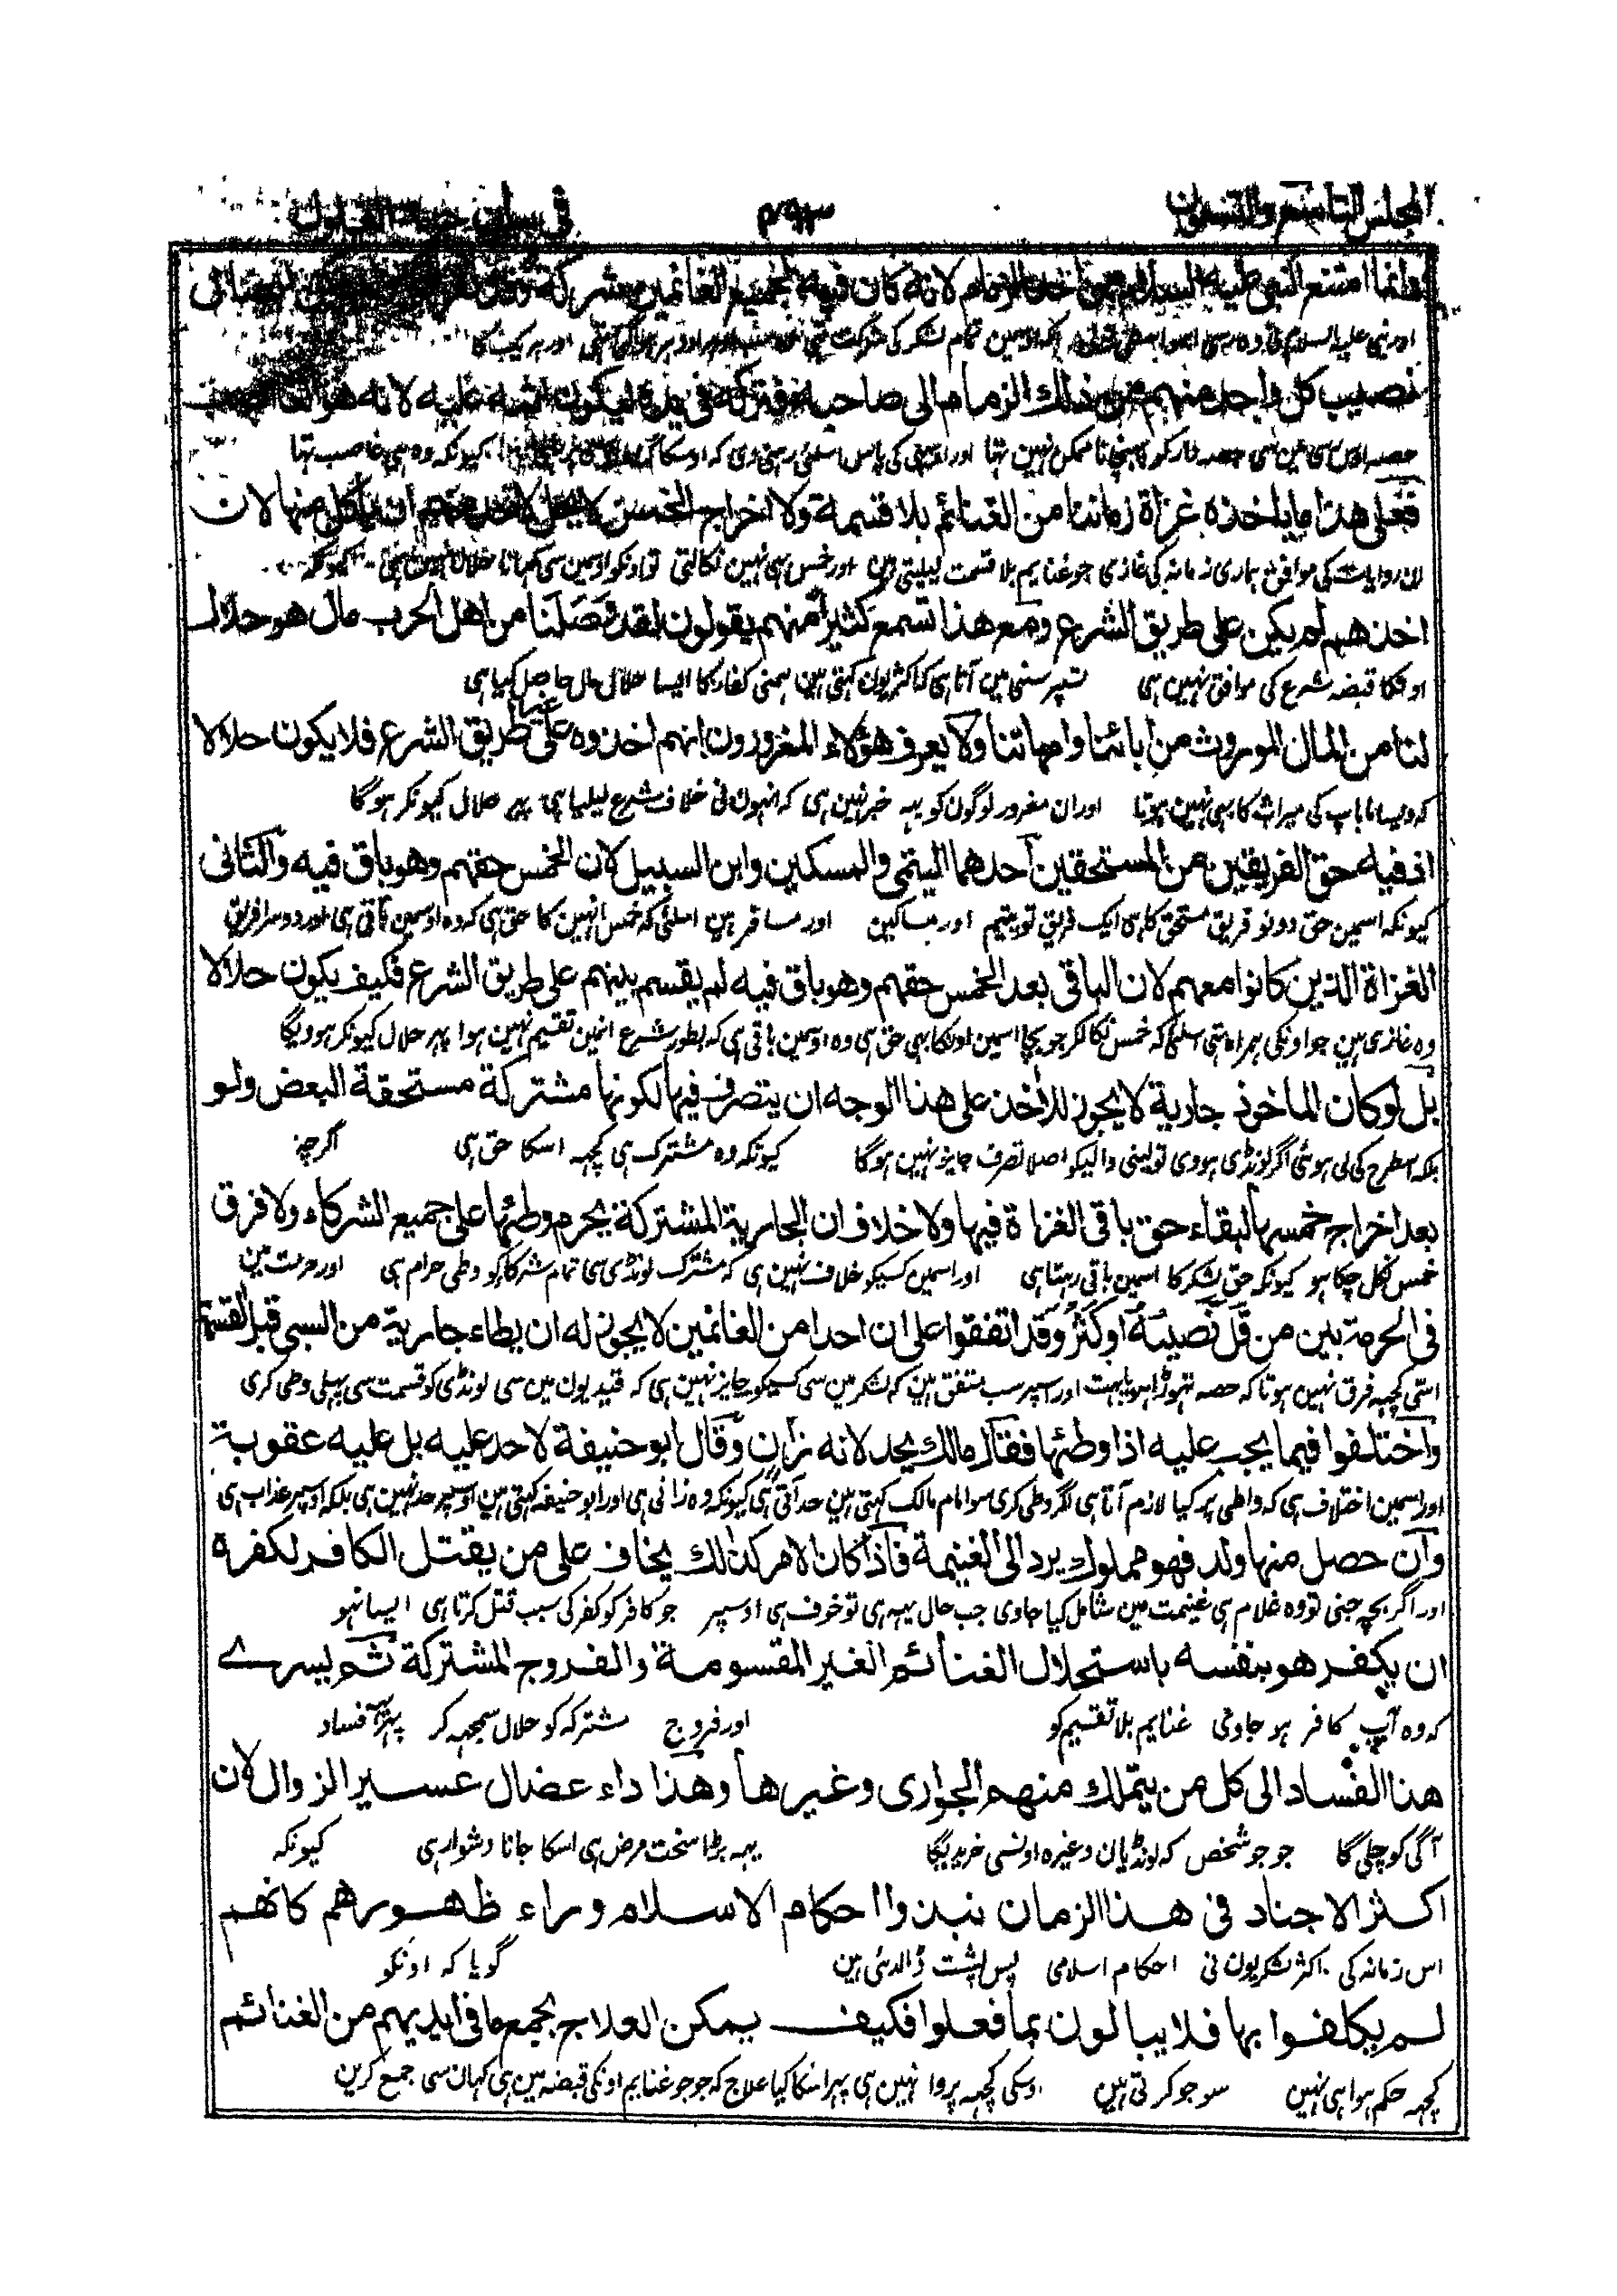 المجلس التاسع والتسعون ۴۹۳ في بيان حرمة الغلول
وانما امتنع النبي عليه السلام من اخذ الزمام لانه كان فيه لجميع الغانمين شركة
اور نبی علیہ السلام نی تمام لشکر کی شرکت تہی اور ہر یک کا
نصيب كل واحد منهم من ذلك الزمام الى صاحبه فتركه في يده ليكون اثمه عليه لانه هو الغاصب
حصہ حصہ دار کو پہنچانا ممکن نہین تہا اور اوسی کی پاس اسلئی رہنی دی کہ اوسکا کیونکہ وہ ہی غاصب تہا
فعلى هذا ما ياخذه غزاة زماننا من الغنائم بلا قسمة ولا اخراج الخمس لا يحل لاحد منهم ان ياكل منها لان
ان روایات کی موافق ہماری زمانہ کی غازی جو غنایم بلا قسمت لیلیتی ہین اور خمس بہی نہین نکالتی تو اونکو اوسمین سی کہانا حلال نہین ہی کیونکہ
اخذهم لم يكن على طريق الشرع ومع هذا تسمع كثيرا منهم يقولون لقد وصلنا من اهل الحرب مال هو حلال
اونکا قبضہ شرع کی موافق نہین ہی تسپر سننی مین آتا ہی کہ اکثر یون کہتی ہین ہمنی کفار کا ایسا حلال مال حاصل کیا ہی
لنا من المال الموروث من ابائنا وامهاتنا ولا يعرف هؤلاء المغرورون انهم اخذوه على غير طريق الشرع فلا يكون حلالا
کہ ویسا ماباپ کی میراث کا بہی نہین ہوتا اور ان مغرور لوگون کو یہہ خبر نہین ہی کہ انہون نی خلاف شرع لیلیا ہی پہر حلال کیونکر ہوگا
اذ فيه حق الفريقين من المستحقين احدهما اليتمى والمسكين وابن السبيل لان الخمس حقهم وهو باق فيه والثانى
کیونکہ اسمین حق دونو فریق مستحق کا ہی ایک فریق تو یتیم اور مساکین اور مسافر ہین اسلئی کہ خمس انہین کا حق ہی کہ وہ اوسمین باقی ہی اور دوسرا فریق
الغزاة الذين كانوا معهم لان الباقى بعد الخمس حقهم وهو باق فيه لم يقسم بينهم على طريق الشرع فكيف يكون حلالا
وہ غازی ہین جو اونکی ہمراہ تہی اسلئی کہ خمس نکالکر جو بچا اسمین اونکا بہی حق ہی وہ اوسمین باقی ہی کہ بطور شرع انمین تقسیم نہین ہوا پہر حلال کیونکر ہوویگا
بل لو كان الماخوذ جارية لا يجوز للاخذ على هذا الوجه ان يتصرف فيها لكونها مشتركة مستحقة البعض ولو
بلکہ اسطرح کی لی ہوئی اگر لونڈی ہووی تو لینی والیکو اصلا تصرف جایز نہین ہوگا کیونکہ وہ مشترک ہی کچہہ اسکا حق ہی اگرچہ
بعد اخراج خمسها لبقاء حق باقى الغزاة فيها ولا خلاف ان الجارية المشتركة يحرم وطئها على جميع الشركاء ولا فرق
خمس نکل چکا ہو کیونکہ حق لشکر کا اسمین باقی رہتا ہی اور اسمین کسیکو خلاف نہین ہی کہ مشترک لونڈی سی تمام شرکا کو وطی حرام ہی اور حرمت مین
فى الحرمة بين من قل نصيبه او كثر وقد اتفقوا على ان احدا من الغانمين لا يجوز له ان يطاء جارية من السبى قبل القسمة
اتنی کچہہ فرق نہین ہوتا کہ حصہ تہوڑا ہو یا بہت اور اسپر سب متفق ہین کہ لشکر مین سی کسیکو جایز نہین ہی کہ قیدیون مین سی لونڈی کو قسمت سی پہلی وطی کری
واختلفوا فيما يجب عليه اذا وطئها فقال مالك يحد لانه زان وقال ابو حنيفة لا حد عليه بل عليه عقوبة
اور اسمین اختلاف ہی کہ واطی پر کیا لازم آتا ہی اگر وطی کری سو امام مالک کہتی ہین حد آتی ہی کیونکہ وہ زانی ہی اور ابو حنیفہ کہتی ہین اوسپر حد نہین ہی بلکہ اوسپر عذاب ہی
وان حصل منها ولد فهو مملوك يرد الى الغنيمة فاذا كان الامر كذلك يخاف على من يقتل الكافر لكفره
اور اگر بچہ جنی تو وہ غلام ہی غنیمت مین شامل کیا جاوی جب حال یہہ ہی تو خوف ہی اوسپر جو کافر کو کفر کی سبب قتل کرتا ہی ایسا نہو
ان يكفر هو بنفسه باستحلال الغنائم الغير المقسومة والفروج المشتركة ثم يسرى
کہ وہ آپ کافر ہو جاوی غنایم بلا تقسیم کو اور فروج مشترکہ کو حلال سمجہہ کر پہر یہہ فساد
هذا الفساد الى كل من يتملك منهم الجوارى وغيرها وهذا داء عضال عسير الزوال لان
آگی کو چلی گا جو جو شخص کہ لونڈیان وغیرہ اونسی خریدیگا یہہ بڑا سخت مرض ہی اسکا جانا دشوار ہی کیونکہ
اكثر الاجناد فى هذا الزمان نبذوا احكام الاسلام وراء ظهورهم كانهم
اس زمانہ کی اکثر لشکریون نی احکام اسلامی پس پشت ڈالدئی ہین گویا کہ اونکو
لم يكلفوا بها فلا يبالون بما فعلوا فكيف يمكن العلاج بجمع ما فى ايديهم من الغنائم
کچہہ حکم ہوا ہی نہین سو جو کرتی ہین اوسکی کچہہ پروا نہین ہی پہر اسکا کیا علاج کہ جو جو غنایم اونکی قبضہ مین ہی کہان سی جمع کرین